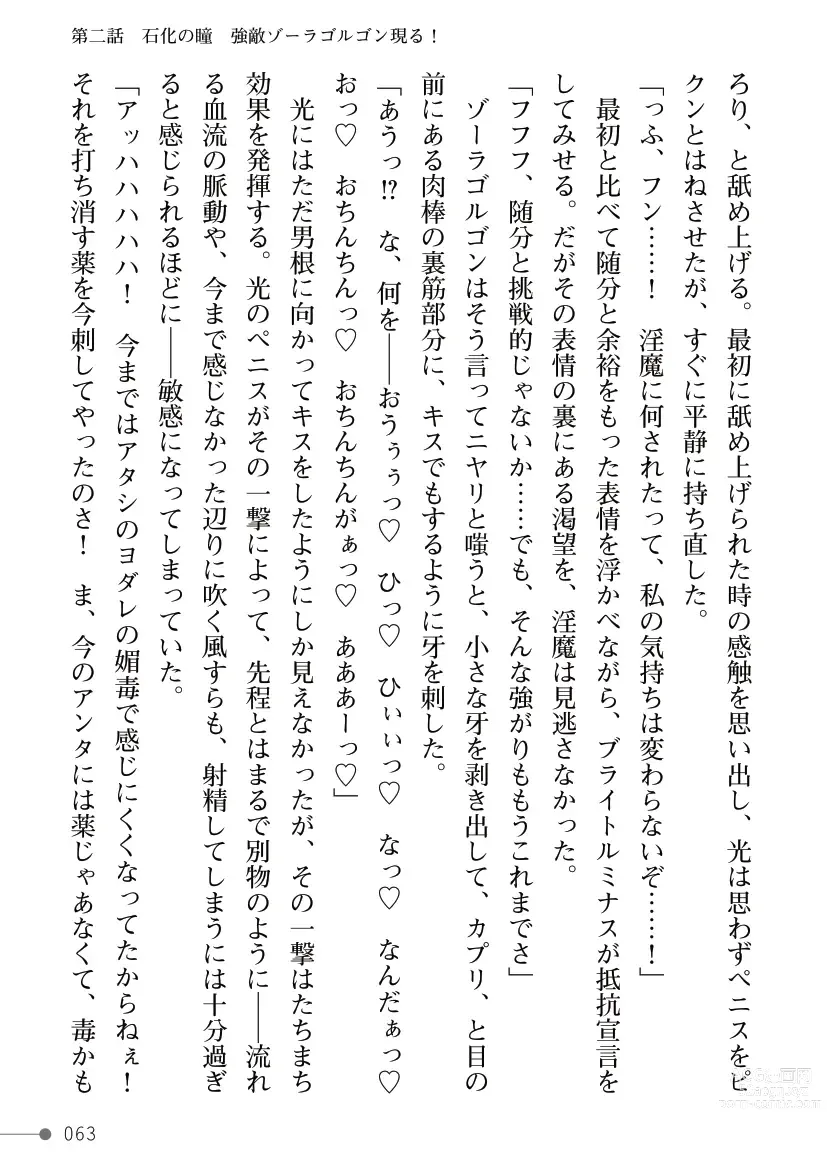 第二話　石化の瞳　強敵ゾーラゴルゴン現る！
ろり、と舐め上げる。最初に舐め上げられた時の感触を思い出し、光は思わずペニスをピ
クンとはねさせたが、すぐに平静に持ち直した。
「っふ、フン……！　淫魔に何されたって、私の気持ちは変わらないぞ……！」
　最初と比べて随分と余裕をもった表情を浮かべながら、ブライトルミナスが抵抗宣言を
してみせる。だがその表情の裏にある渇望を、淫魔は見逃さなかった。
「フフフ、随分と挑戦的じゃないか……でも、そんな強がりももうこれまでさ」
　ゾーラゴルゴンはそう言ってニヤリと嗤うと、小さな牙を剥き出して、カプリ、と目の
前にある肉棒の裏筋部分に、キスでもするように牙を刺した。
「あうっ!?　な、何を――おうぅぅっ♡　ひっ♡　ひぃぃっ♡　なっ♡　なんだぁっ♡
おっ♡　おちんちんっ♡　おちんちんがぁっ♡　あああーっ♡」
　光にはただ男根に向かってキスをしたようにしか見えなかったが、その一撃はたちまち
効果を発揮する。光のペニスがその一撃によって、先程とはまるで別物のように――流れ
る血流の脈動や、今まで感じなかった辺りに吹く風すらも、射精してしまうには十分過ぎ
ると感じられるほどに――敏感になってしまっていた。
「アッハハハハハ！　今まではアタシのヨダレの媚毒で感じにくくなってたからねぇ！
それを打ち消す薬を今刺してやったのさ！　ま、今のアンタには薬じゃあなくて、毒かも
063